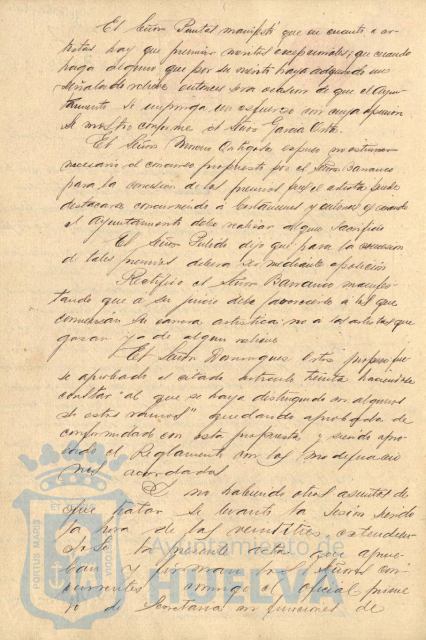 El Señor Pantas manifestó que en cuanto a ar
tistas hay que premiar méritos excepcionales; que cuando
haya alguno que por su mérito haya adquirido un
señalado relieve entonces será ocasión de que el Ayun
tamiento se imponga un esfuerzo con cuya opinión
se mostró conforme el Señor García Ortiz.
El Señor Moreno Ortigosa expuso no estimar
necesario el concurso propuesto por el Señor Barranco
para la concesión de los premios pues el artista puede
destacarse concurriendo a Certámenes y entonces es cuando
el Ayuntamiento debe realizar algún sacrificio
El Señor Pulido dijo que para la concesión
de tales premios debiera ser mediante oposición
Rectificó el Señor Barranco manifes
tando que a su juicio debe favorecerse a los que
comienzan su carrera artística, no a los artistas que
gozan ya de algún relieve
El Señor Domínguez Ortiz propuso fue
se aprobado el citado artículo treinta haciéndose
constar "al que se haya distinguido en algunos
de estos ramos" quedando aprobada de
conformidad con esta propuesta y siendo apro
bado el Reglamento con las modificacio
nes acordadas
Y no habiendo otros asuntos de
que tratar se levantó la sesión siendo
la hora de las veintitres, extendien
dose la presente acta que aprue
ban y firman los Señores con
currentes conmigo el Oficial prime
ro de Secretaría en funciones de
PORTUS MARIS
ET
Ayuntamiento de
HUELVA